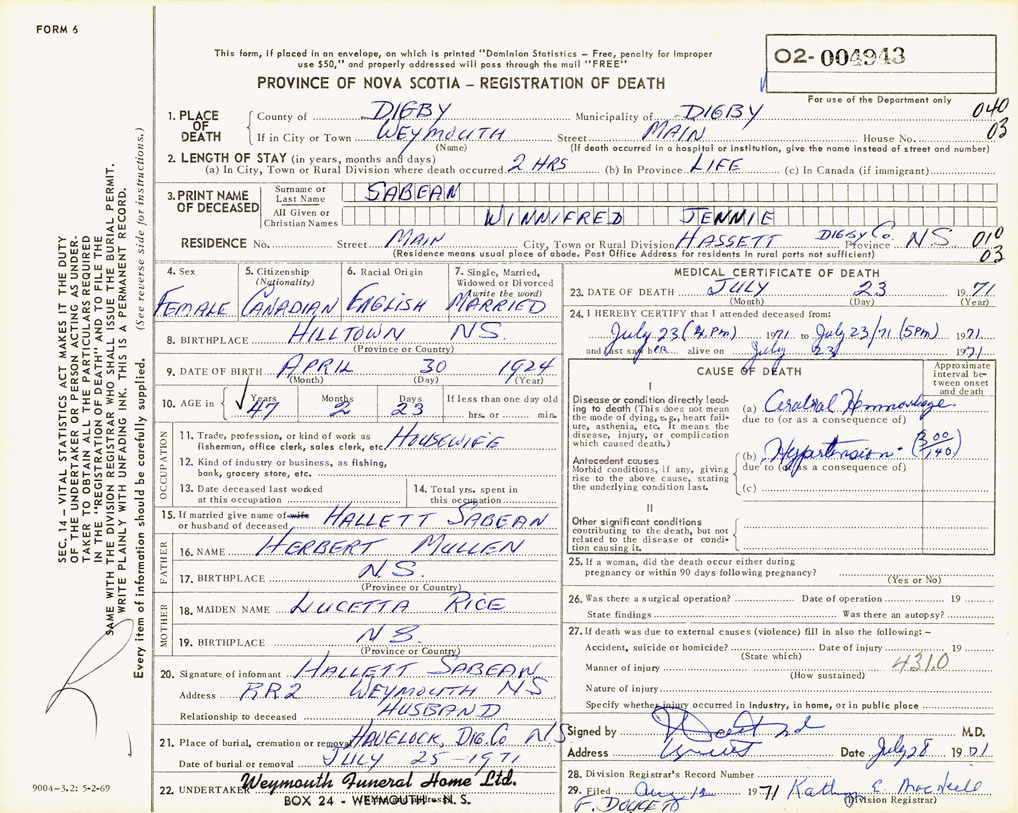 FORM 6
This form, if placed in an envelope, on which is printed "Dominion Statistics – Free, penalty for improper
use $50," and properly addressed will pass through the mail "FREE"
PROVINCE OF NOVA SCOTIA – REGISTRATION OF DEATH
02-004943
For use of the Department only
1. PLACE OF DEATH
County of DIGBY Municipality of DIGBY 040
If in City or Town WEYMOUTH Street MAIN House No. 03
(Name) (If death occurred in a hospital or institution, give the name instead of street and number)
2. LENGTH OF STAY (in years, months and days)
(a) In City, Town or Rural Division where death occurred 2 HRS (b) In Province LIFE (c) In Canada (if immigrant)
3. PRINT NAME OF DECEASED
Surname or Last Name SABEAN
All Given or Christian Names WINNIFRED JENNIE
RESIDENCE No. Street MAIN City, Town or Rural Division HASSETT DIGBY Co. Province NS 010
(Residence means usual place of abode. Post Office Address for residents in rural parts not sufficient) 03
4. Sex FEMALE
5. Citizenship (Nationality) CANADIAN
6. Racial Origin ENGLISH
7. Single, Married, Widowed or Divorced (write the word) MARRIED
8. BIRTHPLACE HILLTOWN NS.
(Province or Country)
9. DATE OF BIRTH APRIL 30 1924
(Month) (Day) (Year)
10. AGE in Years 47 Months 2 Days 23 If less than one day old
hrs. or min.
OCCUPATION
11. Trade, profession, or kind of work as fisherman, office clerk, sales clerk, etc. HOUSEWIFE
12. Kind of industry or business, as fishing, bank, grocery store, etc.
13. Date deceased last worked at this occupation
14. Total yrs. spent in this occupation
15. If married give name of wife or husband of deceased HALLETT SABEAN
FATHER
16. NAME HERBERT MULLEN
17. BIRTHPLACE N.S.
(Province or Country)
MOTHER
18. MAIDEN NAME LUCETTA RICE
19. BIRTHPLACE N S.
(Province or Country)
20. Signature of informant HALLETT SABEAN
Address RR2 WEYMOUTH NS
Relationship to deceased HUSBAND
21. Place of burial, cremation or removal HAVELOCK, DIG. CO NS
Date of burial or removal JULY 25-1971
22. UNDERTAKER Weymouth Funeral Home Ltd.
BOX 24 - WEYMOUTH, N. S.
MEDICAL CERTIFICATE OF DEATH
23. DATE OF DEATH JULY 23 1971
(Month) (Day) (Year)
24. I HEREBY CERTIFY that I attended deceased from:
July 23 (4 p.m) 1971 to July 23/71 (5pm) 1971
and last saw her alive on July 23 1971
CAUSE OF DEATH
Approximate interval between onset and death
I
Disease or condition directly leading to death (This does not mean the mode of dying, e.g., heart failure, asthenia, etc. It means the disease, injury, or complication which caused death.)
(a) Cerebral Hemmorhage
due to (or as a consequence of)
Antecedent causes
Morbid conditions, if any, giving rise to the above cause, stating the underlying condition last.
(b) Hypertension. (300/140)
due to (or as a consequence of)
(c)
II
Other significant conditions contributing to the death, but not related to the disease or condition causing it.
25. If a woman, did the death occur either during pregnancy or within 90 days following pregnancy?
(Yes or No)
26. Was there a surgical operation? Date of operation 19
State findings Was there an autopsy?
27. If death was due to external causes (violence) fill in also the following: –
Accident, suicide or homicide? Date of injury 19
(State which)
Manner of injury 431.0
(How sustained)
Nature of injury
Specify whether injury occurred in industry, in home, or in public place
Signed by M.D.
Address Date July 28 1971
28. Division Registrar's Record Number
29. Filed Aug 12 1971 Kathryn E. MacNeill
(Division Registrar)
F. DOUCET
SEC. 14 – VITAL STATISTICS ACT MAKES IT THE DUTY
OF THE UNDERTAKER OR PERSON ACTING AS UNDER-
TAKER TO OBTAIN ALL THE PARTICULARS REQUIRED
IN THE "REGISTRATION OF DEATH" AND TO FILE THE
SAME WITH THE DIVISION REGISTRAR WHO SHALL ISSUE THE BURIAL PERMIT.
WRITE PLAINLY WITH UNFADING INK. THIS IS A PERMANENT RECORD.
Every item of information should be carefully supplied. (See reverse side for instructions.)
9004-3.2: 5-2-69